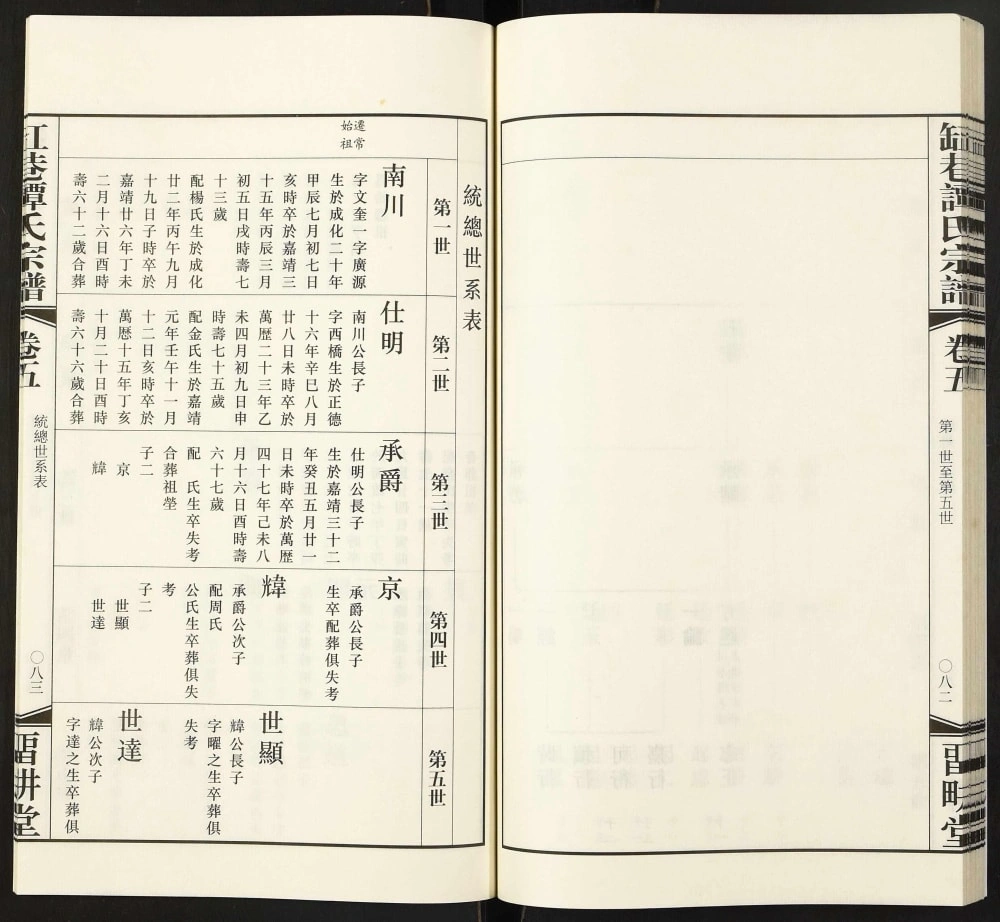 缸巷譚氏宗譜
卷五
第一世至第五世
〇八二
習畊堂
統總世系表
第一世
遷常
始祖
南川
字文奎一字廣源
生於成化二十年
甲辰七月初七日
亥時卒於嘉靖三
十五年丙辰三月
初五日戌時壽七
十三歲
配楊氏生於成化
廿二年丙午九月
十九日子時卒於
嘉靖廿六年丁未
二月十六日酉時
壽六十二歲合葬
第二世
仕明
南川公長子
字西橋生於正德
十六年辛巳八月
廿八日未時卒於
萬歷二十三年乙
未四月初九日申
時壽七十五歲
配金氏生於嘉靖
元年壬午十一月
十二日亥時卒於
萬歷十五年丁亥
十月二十日酉時
壽六十六歲合葬
第三世
承爵
仕明公長子
生於嘉靖三十二
年癸丑五月廿一
日未時卒於萬歷
四十七年己未八
月十六日酉時壽
六十七歲
配　氏生卒失考
合葬祖塋
子二
京
緯
第四世
京
承爵公長子
生卒配葬俱失考
緯
承爵公次子
配周氏
公氏生卒葬俱失
考
子二
世顯
世達
第五世
世顯
緯公長子
字曜之生卒葬俱
失考
世達
緯公次子
字達之生卒葬俱
缸巷譚氏宗譜
卷五
統總世系表
〇八三
習畊堂